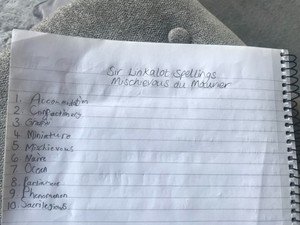 Sir Linkalot Spellings
Mischievous du Maurier
1. Accommodation
2. Confectionery
3.
4. Miniature
5. Mischievous
6. Naive
7. Ocean
8.
9. Phenomenon
10. Sacrilegious